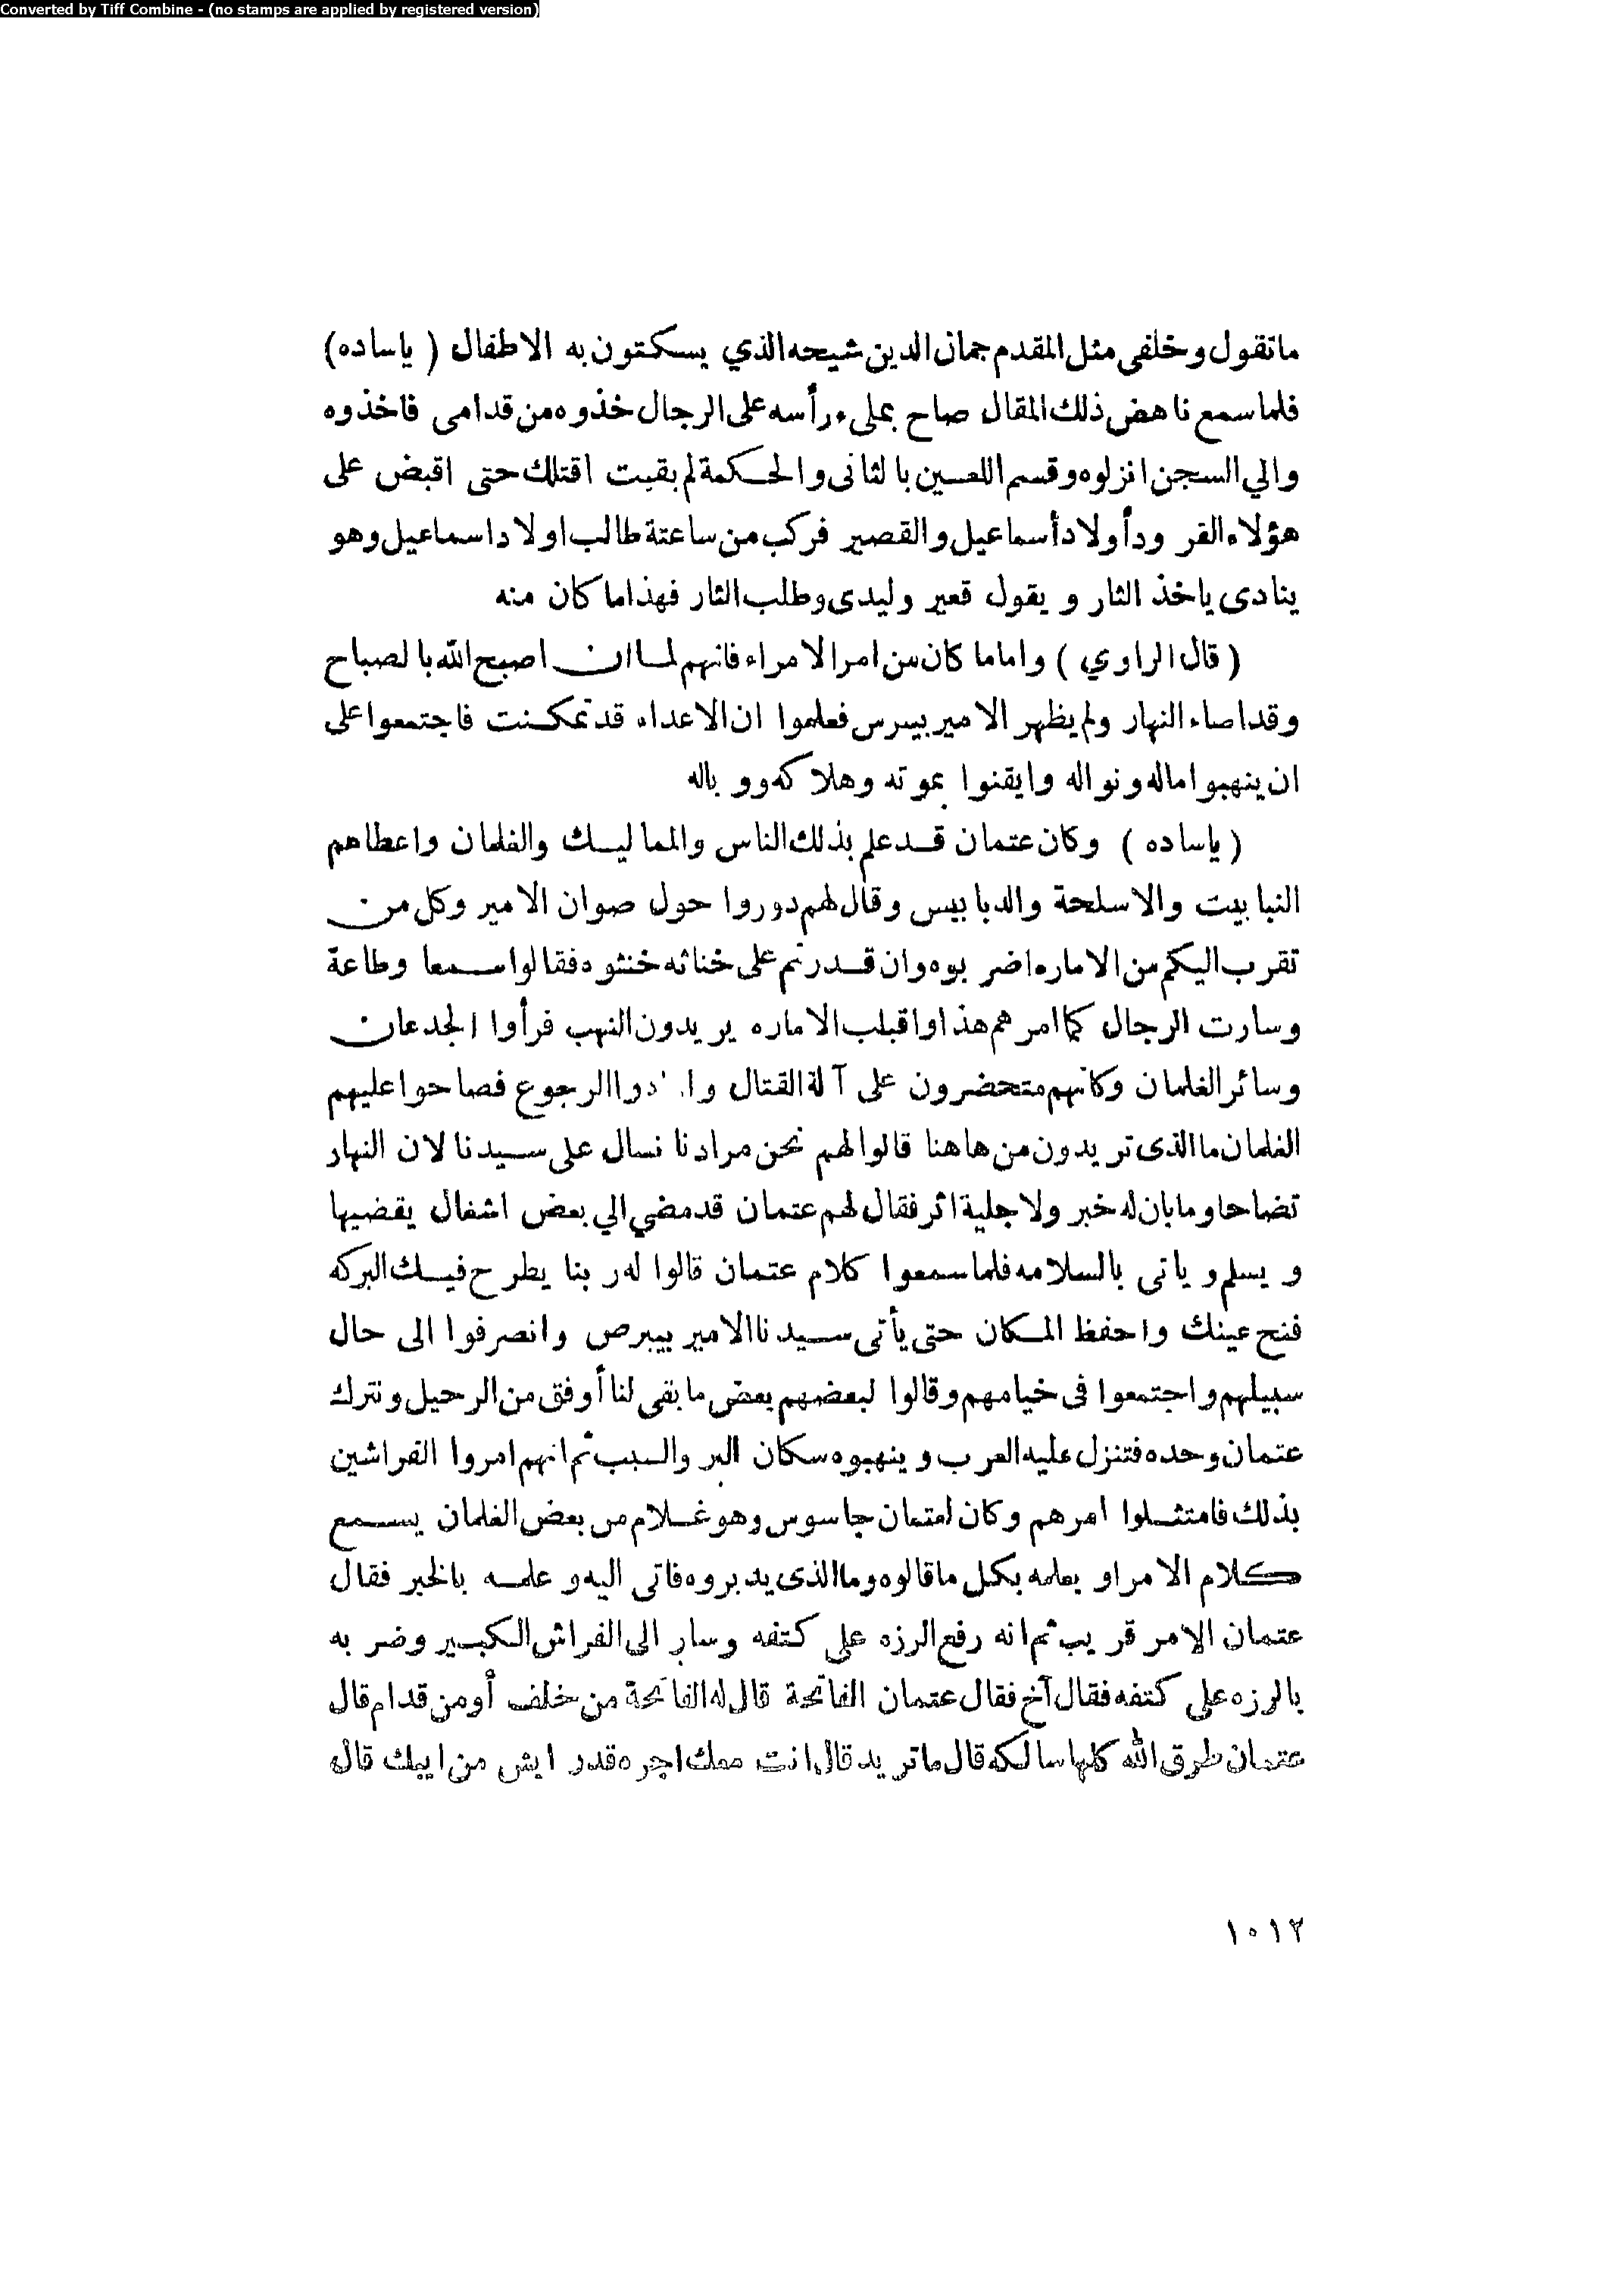 Converted by Tiff Combine - (no stamps are applied by registered version)
ماتقول وخلفى مثل المقدم جمان الدين شيحه الذي يسكتون به الاطفال ( ياساده)
فلما سمع ناهض ذلك المقال صاح بملىء رأسه على الرجال خذوه من قدامى فاخذوه
والي السجن انزلوه وقسم اللعسين بالثانى والحكمة لم بقيت اقتلك حتى اقبض على
هؤلاء القر ود أولاد أسماعيل والقصير فركب من ساعتة طالب اولاد اسماعيل وهو
ينادى ياخذ الثار و يقول قعير وليدى وطلب الثار فهذا ما كان منه
( قال الراوي ) واما ما كان من امر الامراء فانهم لما ان اصبح الله بالصباح
وقد اصاء النهار ولم يظهر الامير بيبرس فعلموا ان الاعداء قد تمكنت فاجتمعوا على
ان ينهبوا ماله ونواله وايقنوا بموته وهلاكه وو باله
( ياساده ) وكان عتمان قد علم بذلك الناس والمماليك والغلمان واعطاهم
النبابيت والاسلحة والدبابيس وقال لهم دوروا حول صوان الامير وكل من
تقرب اليكم من الاماره اضر بوه وان قدرتم على خناثه خنثوه فقالوا سمعا وطاعة
وسارت الرجال كما امرهم هذا واقبلب الاماره ير يدون النهب فرأوا الجدعان
وسائر الغلمان وكانهم متحضرون على آلة القتال وا. دوا الرجوع فصاحوا عليهم
الغلمان ما الذى تر يدون من هاهنا قالوا لهم نحن مرادنا نسال على سيدنا لان النهار
تضاحا وما بان له خبر ولا جلية اثر فقال لهم عتمان قد مضي الي بعض اشغال يقضيها
و يسلم و ياتى بالسلامه فلما سمعوا كلام عتمان قالوا له ر بنا يطرح فيك البركه
فنح عينك واحفظ المكان حتى يأتى سيدنا الامير بيبرص وانصرفوا الى حال
سبيلهم واجتمعوا فى خيامهم وقالوا لبعضهم بعض ما بقى لنا أوفق من الرحيل ونترك
عتمان وحده فتنزل عليه العرب و ينهبوه سكان البر والسبب ثم انهم امروا الفراشين
بذلك فامتثلوا امرهم وكان لعتمان جاسوس وهو غلام من بعض الغلمان يسمع
كلام الامرا و يعلمه بكل ما قالوه وما الذى يدبروه فاتى اليه و علمه بالخبر فقال
عتمان الامر قر يب ثم انه رفع الرزه على كتفه وسار الى الفراش الكبير وضر به
بالرزه على كتفه فقال آخ فقال عتمان الفاتحة قال له الفاتحة من خلف أو من قدام قال
عتمان طرق الله كلها سالكه قال ماتر يد قال انت معك اجره قدر ايش من ايبك قال
١٠١٢